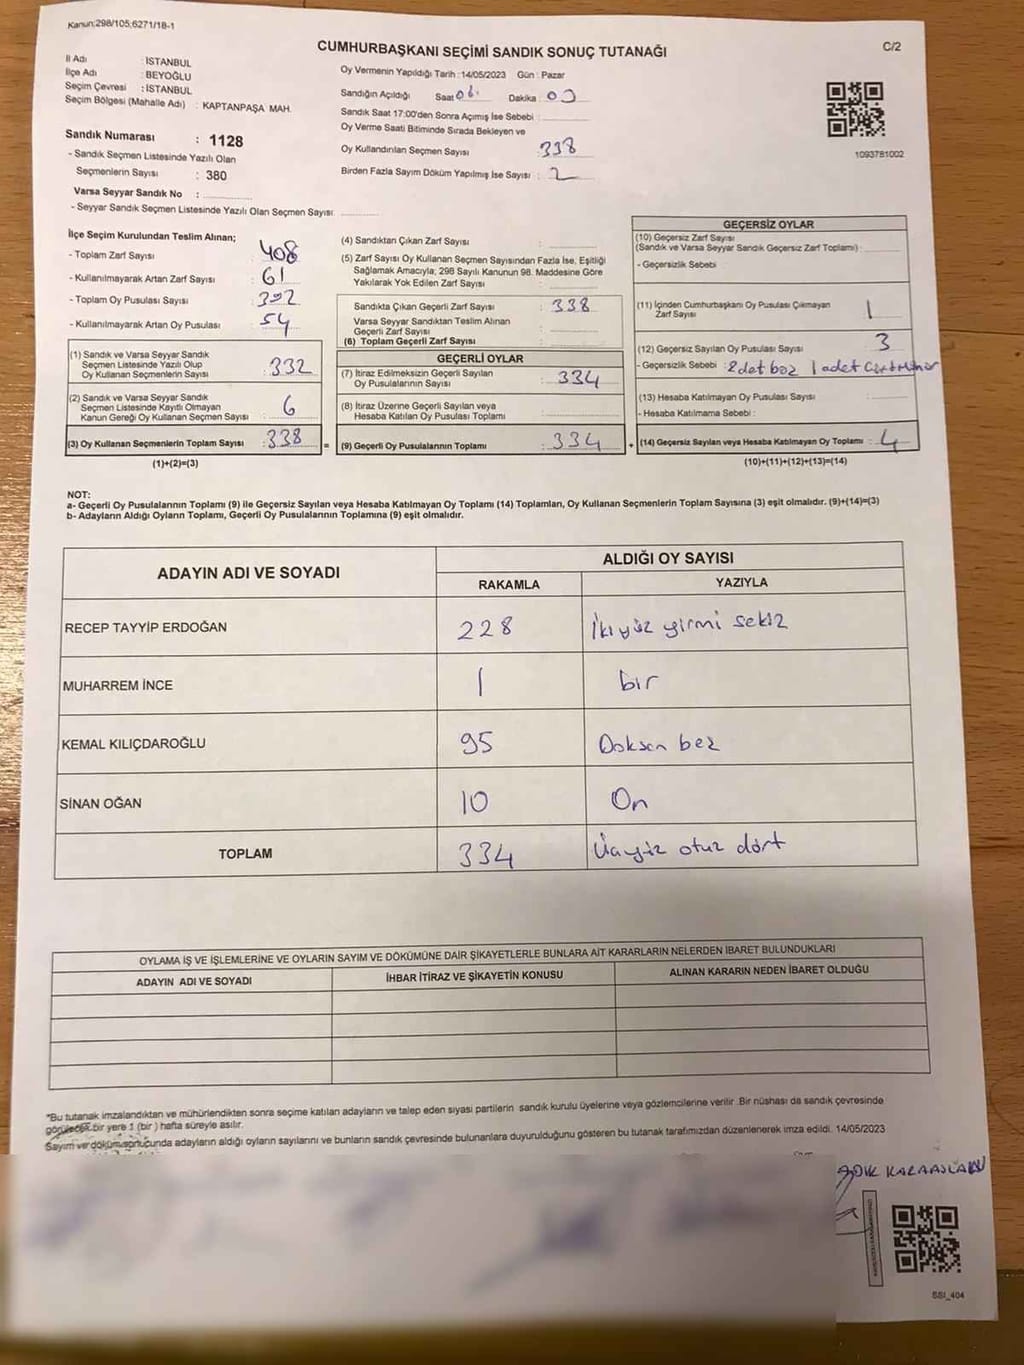 Kanun:298/105;6271/18-1
C/2
CUMHURBAŞKANI SEÇİMİ SANDIK SONUÇ TUTANAĞI
İl Adı : İSTANBUL
İlçe Adı : BEYOĞLU
Seçim Çevresi : İSTANBUL
Seçim Bölgesi (Mahalle Adı) : KAPTANPAŞA MAH.
Sandık Numarası : 1128
- Sandık Seçmen Listesinde Yazılı Olan
Seçmenlerin Sayısı : 380
Varsa Seyyar Sandık No :
- Seyyar Sandık Seçmen Listesinde Yazılı Olan Seçmen Sayısı
Oy Vermenin Yapıldığı Tarih :14/05/2023 Gün : Pazar
Sandığın Açıldığı Saat Dakika
Sandık Saat 17:00'den Sonra Açımış İse Sebebi :
Oy Verme Saati Bitiminde Sırada Bekleyen ve
Oy Kullandırılan Seçmen Sayısı : 338
Birden Fazla Sayım Döküm Yapılmış İse Sayısı : 2
1093781002
İlçe Seçim Kurulundan Teslim Alınan;
- Toplam Zarf Sayısı : 408
- Kullanılmayarak Artan Zarf Sayısı : 61
- Toplam Oy Pusulası Sayısı :
- Kullanılmayarak Artan Oy Pusulası : 54
(1) Sandık ve Varsa Seyyar Sandık
Seçmen Listesinde Yazılı Olup
Oy Kullanan Seçmenlerin Sayısı : 332
(2) Sandık ve Varsa Seyyar Sandık
Seçmen Listesinde Kayıtlı Olmayan
Kanun Gereği Oy Kullanan Seçmen Sayısı : 6
(3) Oy Kullanan Seçmenlerin Toplam Sayısı : 338 =
(1)+(2)=(3)
(4) Sandıktan Çıkan Zarf Sayısı :
(5) Zarf Sayısı Oy Kullanan Seçmen Sayısından Fazla İse, Eşitliği
Sağlamak Amacıyla; 298 Sayılı Kanunun 98. Maddesine Göre
Yakılarak Yok Edilen Zarf Sayısı :
Sandıkta Çıkan Geçerli Zarf Sayısı : 338
Varsa Seyyar Sandıktan Teslim Alınan
Geçerli Zarf Sayısı :
(6) Toplam Geçerli Zarf Sayısı :
GEÇERLİ OYLAR
(7) İtiraz Edilmeksizin Geçerli Sayılan
Oy Pusulalarının Sayısı : 334
(8) İtiraz Üzerine Geçerli Sayılan veya
Hesaba Katılan Oy Pusulası Toplamı :
(9) Geçerli Oy Pusulalarının Toplamı : 334 +
GEÇERSİZ OYLAR
(10) Geçersiz Zarf Sayısı
(Sandık ve Varsa Seyyar Sandık Geçersiz Zarf Toplamı) :
- Geçersizlik Sebebi :
(11) İçinden Cumhurbaşkanı Oy Pusulası Çıkmayan
Zarf Sayısı : 1
(12) Geçersiz Sayılan Oy Pusulası Sayısı : 3
- Geçersizlik Sebebi : 1 adet
(13) Hesaba Katılmayan Oy Pusulası Sayısı :
- Hesaba Katılmama Sebebi :
(14) Geçersiz Sayılan veya Hesaba Katılmayan Oy Toplamı : 4
(10)+(11)+(12)+(13)=(14)
NOT:
a- Geçerli Oy Pusulalarının Toplamı (9) ile Geçersiz Sayılan veya Hesaba Katılmayan Oy Toplamı (14) Toplamları, Oy Kullanan Seçmenlerin Toplam Sayısına (3) eşit olmalıdır. (9)+(14)=(3)
b- Adayların Aldığı Oyların Toplamı, Geçerli Oy Pusulalarının Toplamına (9) eşit olmalıdır.
ADAYIN ADI VE SOYADI ALDIĞI OY SAYISI
RAKAMLA YAZIYLA
RECEP TAYYİP ERDOĞAN 228 İkiyüz yirmi sekiz
MUHARREM İNCE 1 bir
KEMAL KILIÇDAROĞLU 95 Doksan beş
SİNAN OĞAN 10 On
TOPLAM 334 Üçyüz otuz dört
OYLAMA İŞ VE İŞLEMLERİNE VE OYLARIN SAYIM VE DÖKÜMÜNE DAİR ŞİKAYETLERLE BUNLARA AİT KARARLARIN NELERDEN İBARET BULUNDUKLARI
ADAYIN ADI VE SOYADI İHBAR İTİRAZ VE ŞİKAYETİN KONUSU ALINAN KARARIN NEDEN İBARET OLDUĞU
*Bu tutanak imzalandıktan ve mühürlendikten sonra seçime katılan adayların ve talep eden siyasi partilerin sandık kurulu üyelerine veya gözlemcilerine verilir .Bir nüshası da sandık çevresinde
görülecek bir yere 1 (bir ) hafta süreyle asılır.
Sayım ve döküm sonucunda adayların aldığı oyların sayılarını ve bunların sandık çevresinde bulunanlara duyurulduğunu gösteren bu tutanak tarafımızdan düzenlenerek imza edildi. 14/05/2023
SSI_404